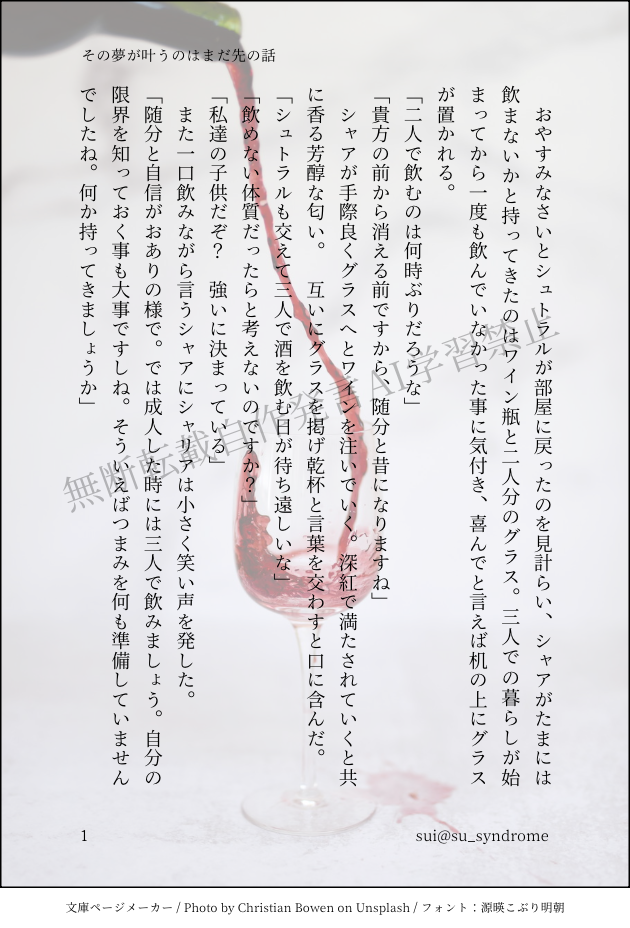 その夢が叶うのはまだ先の話
　おやすみなさいとシュトラルが部屋に戻ったのを見計らい、シャアがたまには
飲まないかと持ってきたのはワイン瓶と二人分のグラス。三人での暮らしが始
まってから一度も飲んでいなかった事に気付き、喜んでと言えば机の上にグラス
が置かれる。
「二人で飲むのは何時ぶりだろうな」
「貴方の前から消える前ですから、随分と昔になりますね」
　シャアが手際良くグラスへとワインを注いでいく。深紅で満たされていくと共
に香る芳醇な匂い。　互いにグラスを掲げ乾杯と言葉を交わすと口に含んだ。
「シュトラルも交えて三人で酒を飲む日が待ち遠しいな」
「飲めない体質だったらと考えないのですか？」
「私達の子供だぞ？　強いに決まっている」
　また一口飲みながら言うシャアにシャリアは小さく笑い声を発した。
「随分と自信がおありの様で。では成人した時には三人で飲みましょう。自分の
限界を知っておく事も大事ですしね。そういえばつまみを何も準備していません
でしたね。何か持ってきましょうか」
無断転載自作発言AI学習禁止
1
sui@su_syndrome
文庫ページメーカー / Photo by Christian Bowen on Unsplash / フォント：源暎こぶり明朝